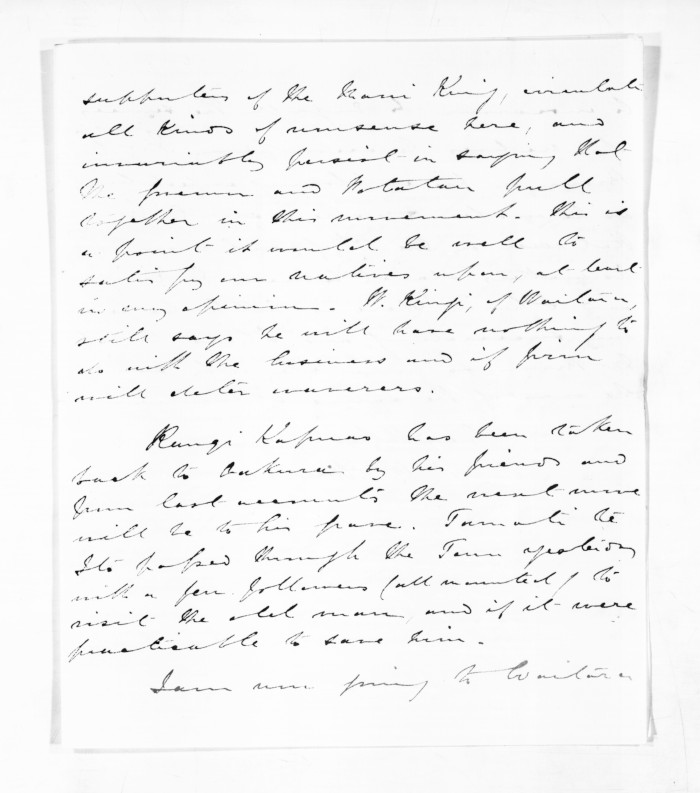 supporters of the Maori King, circulate
all kinds of nonsense here, and
invariably persist in saying that
the and Potatau pull
together in this movement. This is
a point it would be well to
satisfy our natives upon, at least
in my opinion. W. Kingi, of Waitara,
still says he will have nothing to
do with the business and if firm
will deter waverers.
Rangi has been taken
back to Oakura by his friends and
from last accounts the next move
will be to his grave. Tamati te
Ito passed through the Town yesterday
with a few followers (all mounted) to
visit the old man, and if it were
practicable to save him.
I am now going to Waitara